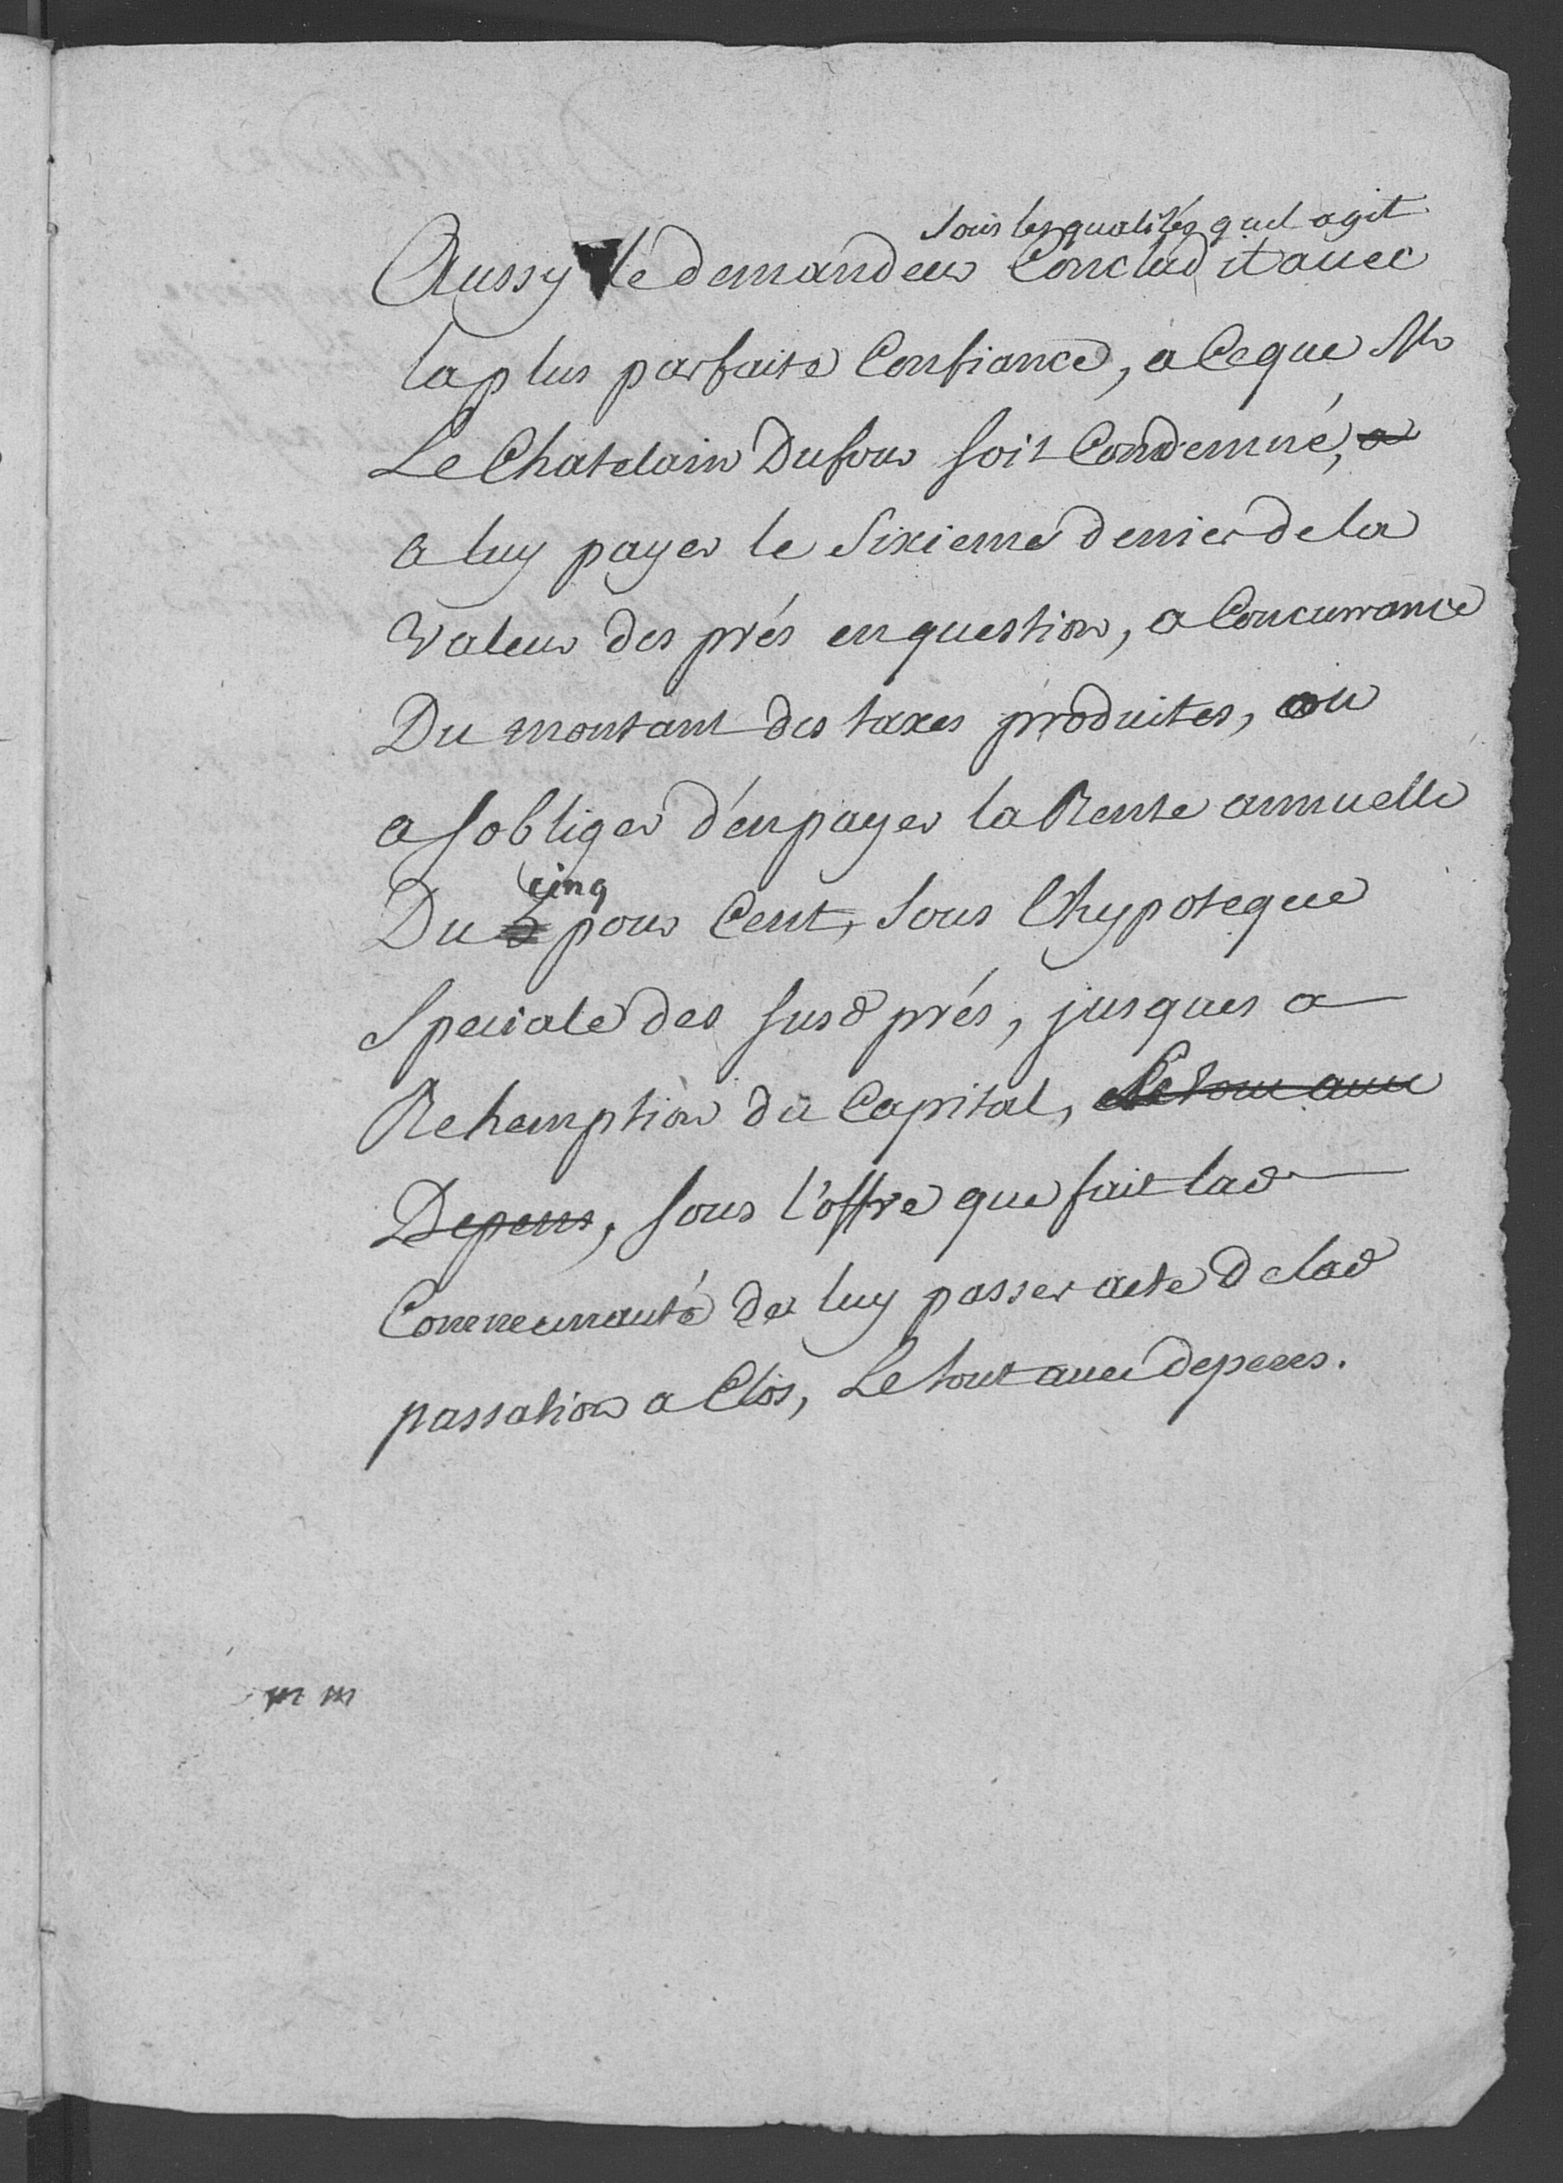 sous les qualités quil agit
Aussy le demandeur Conclud il avec
la plus parfaite Confiance, a Ceque Mr
Le Chatelain Dufour soit Condemné, a
a luy payer le Sixieme denier de la
Valeur des prés en question, a Concurrance
Du montant des taxes produites, ou
a sobliger d'en payer la Rente annuelle
cinq
Du 5 pour Cent, sous l'hypoteque
Speciale des susd prés, jusques a
Rehemption du Capital, Le tout avec
Depens, sous l'offre que fait lad
Communauté de luy passer acte de lad
passation a Clos, Le tout avec depens.